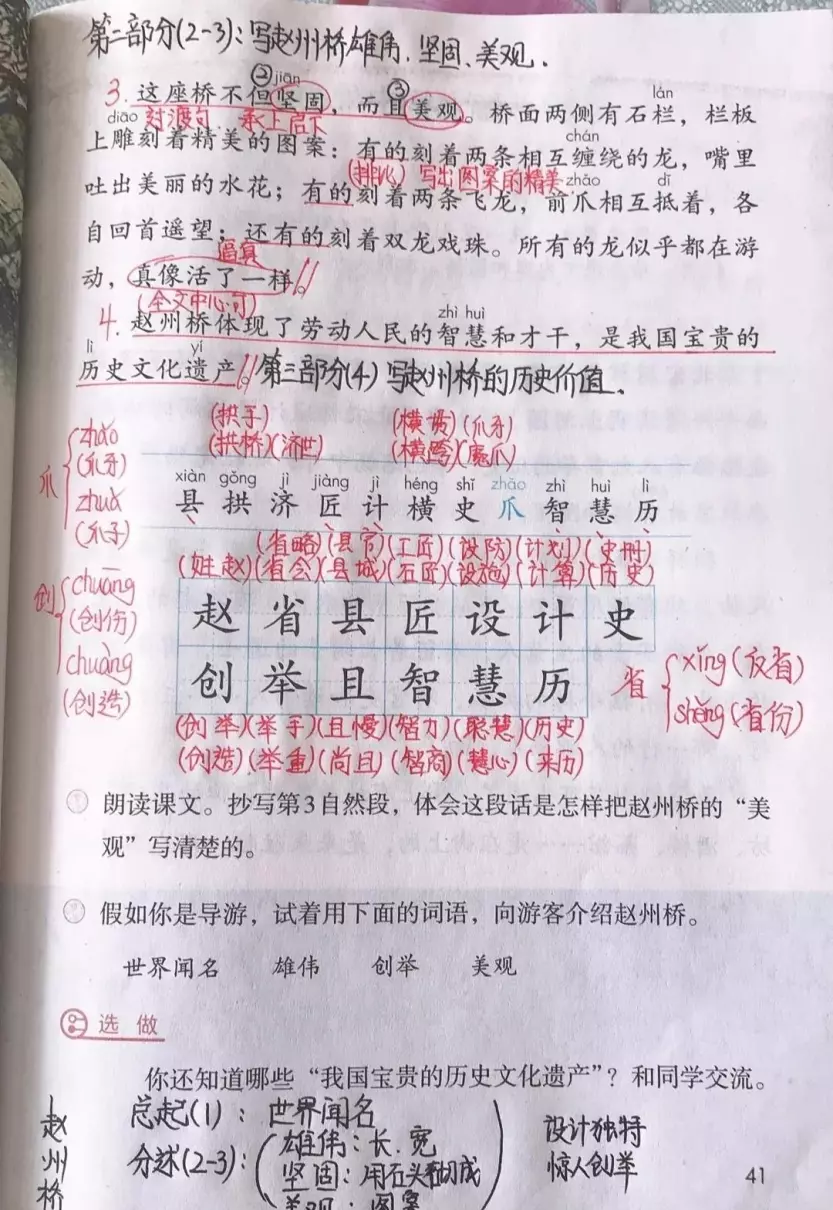 第二部分(2-3):写赵州桥雄伟、坚固、美观.
② jiān ③ lán
3. 这座桥不但坚固，而且美观。桥面两侧有石栏，栏板
diāo 过渡句 承上启下 chán
上雕刻着精美的图案：有的刻着两条相互缠绕的龙，嘴里
(排比) 写出图案的精美 zhǎo dǐ
吐出美丽的水花；有的刻着两条飞龙，前爪相互抵着，各
自回首遥望；还有的刻着双龙戏珠。所有的龙似乎都在游
逼真
动，真像活了一样。
(全文中心句) zhì huì
4. 赵州桥体现了劳动人民的智慧和才干，是我国宝贵的
lì yí
历史文化遗产。第三部分(4) 写赵州桥的历史价值.
(拱手) (横贯)(爪牙)
(拱桥)(济世) (横跨)(魔爪)
爪 zhǎo (爪牙) zhuǎ (爪子)
xiàn gǒng jì jiàng jì héng shǐ zhǎo zhì huì lì
县 拱 济 匠 计 横 史 爪 智 慧 历
(省略)(县官)(工匠)(设防)(计划)(史册)
(姓赵)(省会)(县城)(石匠)(设施)(计算)(历史)
创 chuāng (创伤) chuàng (创造)
赵 省 县 匠 设 计 史
创 举 且 智 慧 历
省 xǐng (反省) shěng (省份)
(创举)(举手)(且慢)(智力)(聪慧)(历史)
(创造)(举重)(尚且)(智商)(慧心)(来历)
朗读课文。抄写第3自然段，体会这段话是怎样把赵州桥的“美
观”写清楚的。
假如你是导游，试着用下面的词语，向游客介绍赵州桥。
世界闻名 雄伟 创举 美观
选 做
你还知道哪些“我国宝贵的历史文化遗产”？和同学交流。
赵州桥
总起(1): 世界闻名
分述(2-3): 雄伟:长.宽
坚固:用石头砌成
美观:图案
设计独特
惊人创举
41